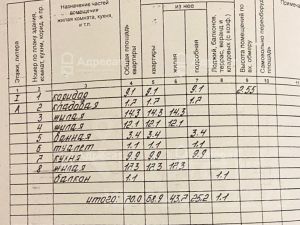 Этаж, литера
Номер по плану здания
Назначение частей помещения жилая комната, кухня и т.п.
Общая площадь квартиры
из нее
квартиры
жилая
подсобная
Лоджий, балконов, террас, веранд и кладовых (с коэф.)
Высота помещений по вн. обмеру
Самовольно переоборуд. площадь
Примеч
1 2 3 4 5 6 7 8 9 10
I 1 коридор 9.1 9.1 9.1 2.55
A 2 кладовая 1.7 1.7 1.7
3 жилая 14.3 14.3 14.3
4 жилая 12.1 12.1 12.1
5 ванная 3.4 3.4 3.4
6 туалет 1.1 1.1 1.1
7 кухня 9.9 9.9 9.9
8 жилая 17.3 17.3 17.3
балкон 1.1 1.1
итого: 70.0 68.9 43.7 25.2 1.1